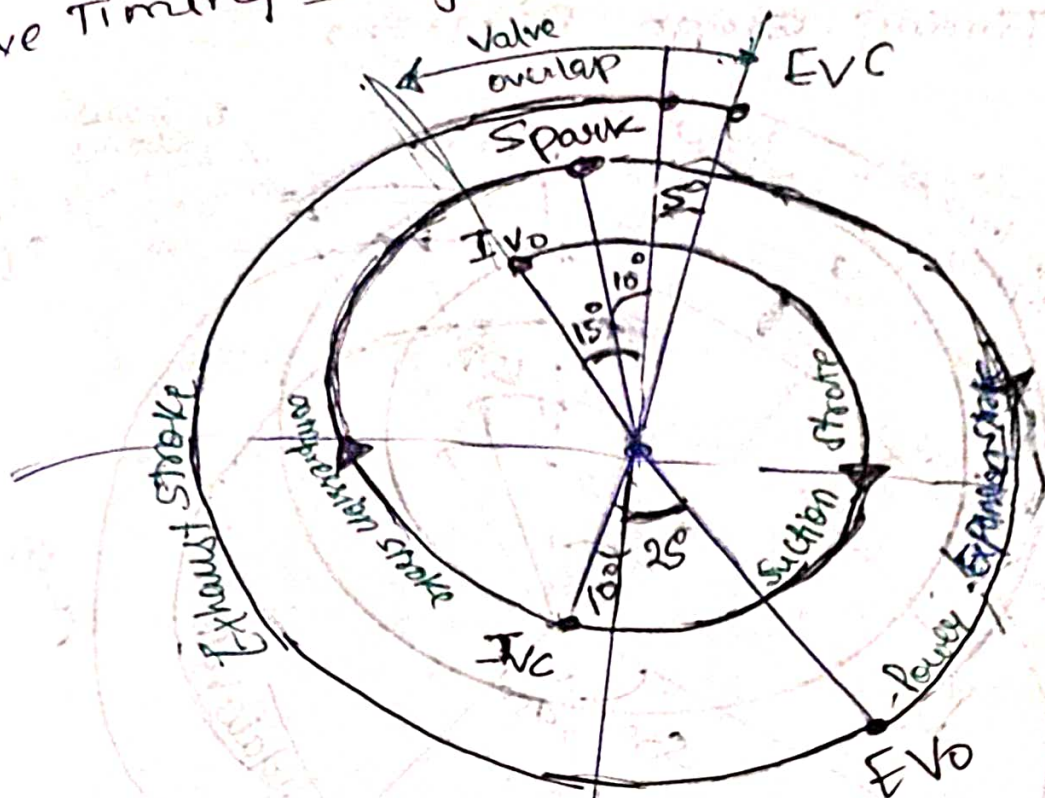 ve Timing
Valve
overlap
EVC
Spark
5°
IVO
10°
15°
Exhaust Stroke
compression stroke
Suction
Stroke
Power Expansion Stroke
10°
25°
IVC
EVO